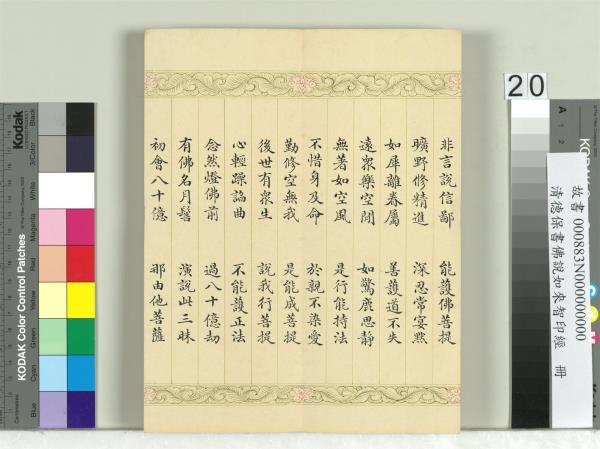 非言說信鄙 能護佛菩提
曠野修精進 深思常宴默
如犀離眷屬 善護道不失
遠衆樂空閒 如驚鹿思靜
無著如空風 是行能持法
不惜身及命 於親不染愛
勤修空無我 是能成菩提
後世有衆生 說我行菩提
心輕躁諂曲 不能護正法
念然燈佛前 過八十億劫
有佛名月髻 演說此三昧
初會八十億 那由他菩薩
20
故書 000883N000000000
清德保書佛說如來智印經 冊
Kodak
KODAK Color Control Patches
Blue
Cyan
Green
Yellow
Red
Magenta
White
3/Color
Black
A
1
2